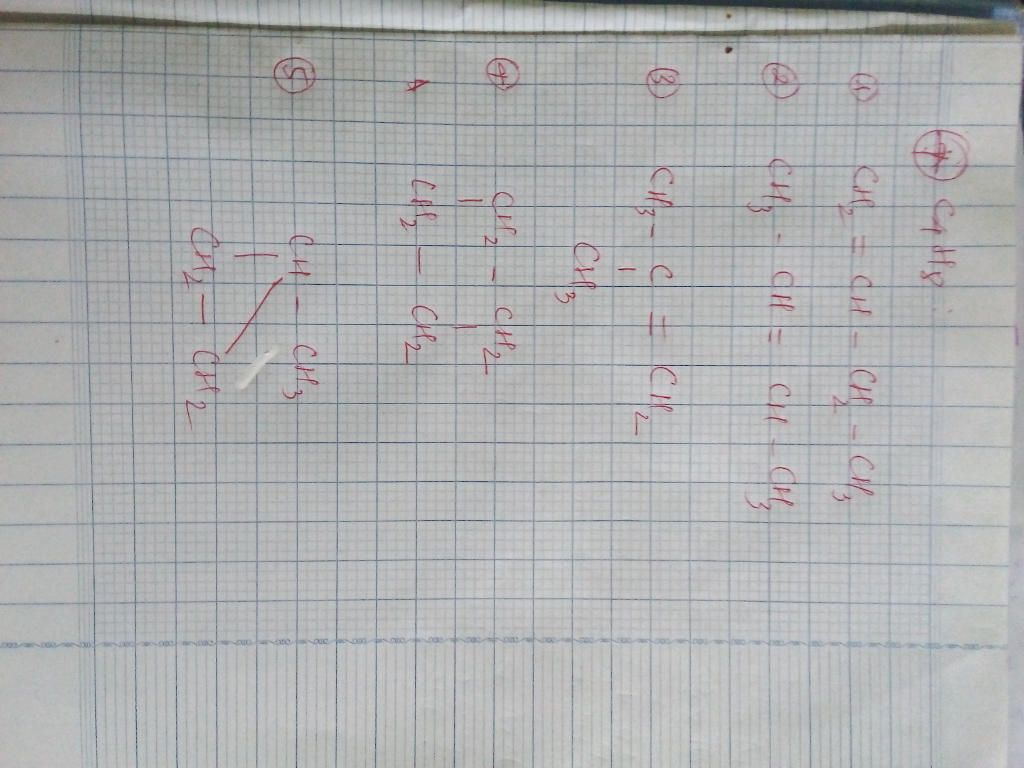 ⑦ C4H8
① CH2 = CH - CH2 - CH3
② CH3 - CH = CH - CH3
③ CH3 - C = CH2
|
CH3
④ CH2 - CH2
| |
CH2 - CH2
⑤ CH - CH3
|
CH2 - CH2